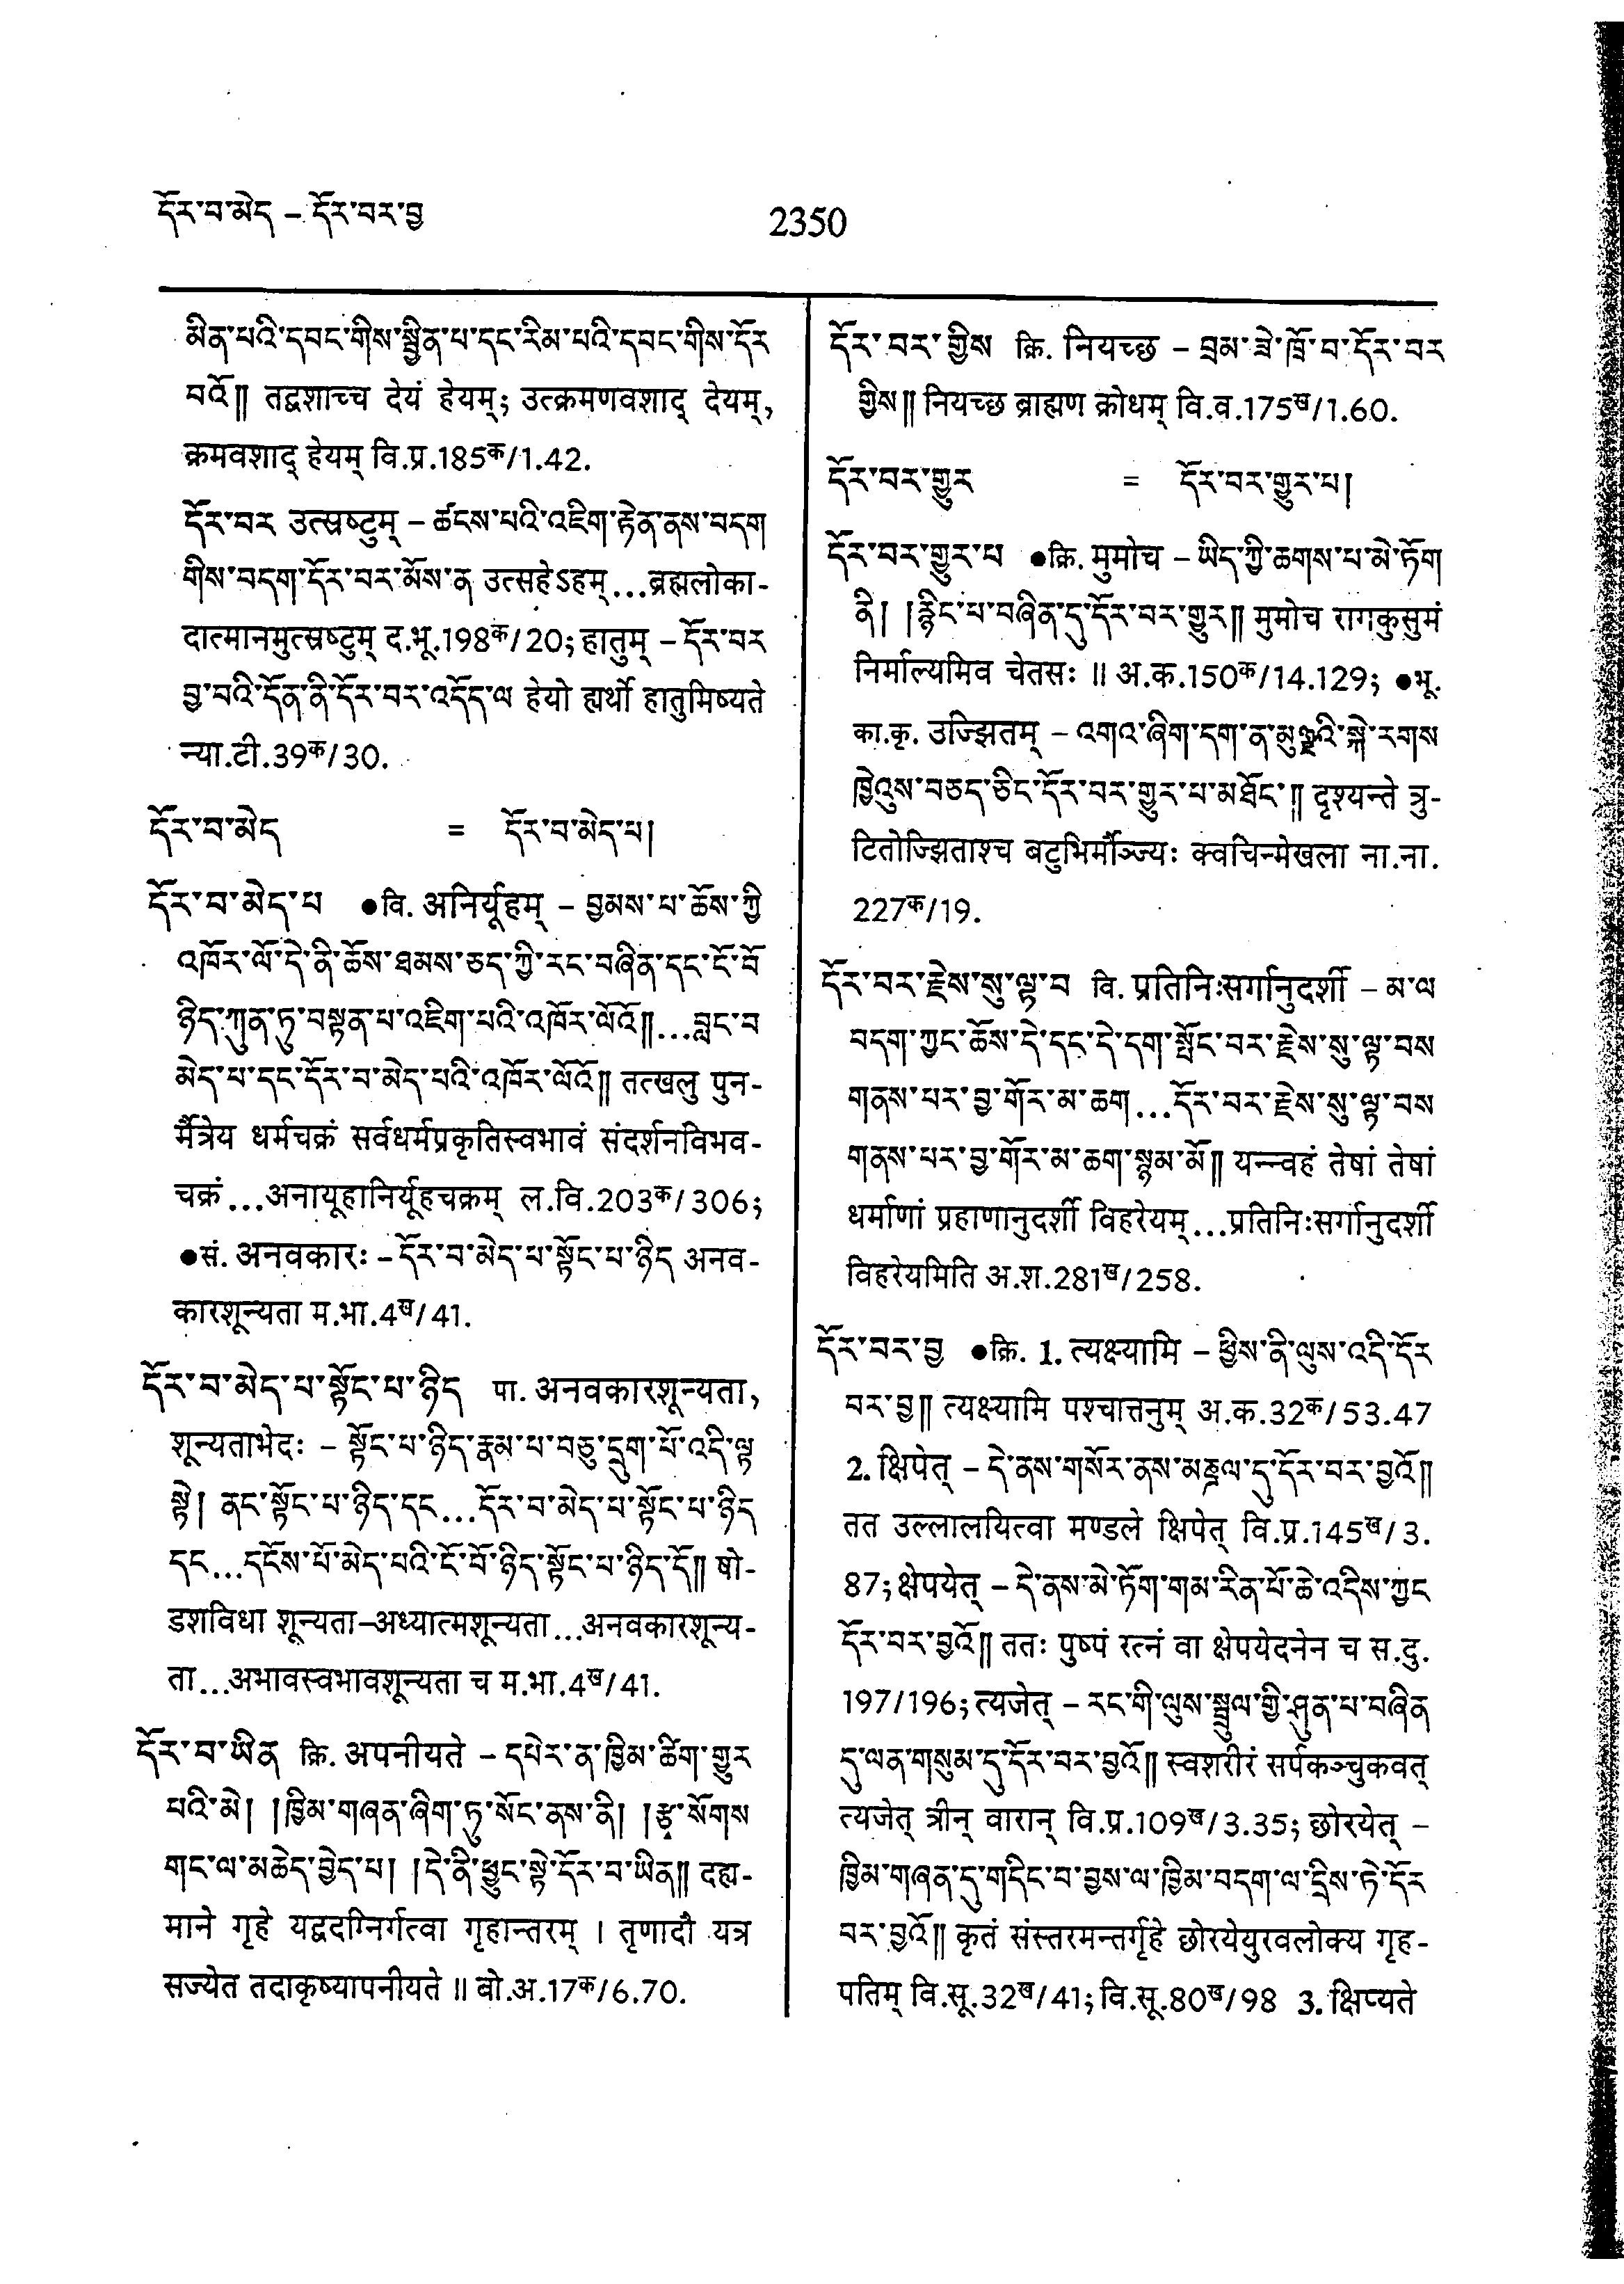 དོར་བ་མེད – དོར་བར་བྱ
2350
མིན་པའི་དབང་གིས་སྦྱིན་པ་དང་རིམ་པའི་དབང་གིས་དོར
བའོ།། तद्वशाच्च देयं हेयम्; उत्क्रमणवशाद् देयम्,
क्रमवशाद् हेयम् वि.प्र.185क/1.42.
དོར་བར उत्स्रष्टुम् – ཚངས་པའི་འཇིག་རྟེན་ནས་བདག
གིས་བདག་དོར་བར་མོས་ན उत्सहेऽहम्...ब्रह्मलोका-
दात्मानमुत्स्रष्टुम् द.भू.198क/20; हातुम् – དོར་བར
བྱ་བའི་དོན་ནི་དོར་བར་འདོད་ལ हेयो ह्यर्थो हातुमिष्यते
न्या.टी.39क/30.
དོར་བ་མེད = དོར་བ་མེད་པ།
དོར་བ་མེད་པ ●वि. अनिर्यूहम् – བྱམས་པ་ཆོས་ཀྱི
འཁོར་ལོ་དེ་ནི་ཆོས་ཐམས་ཅད་ཀྱི་རང་བཞིན་དང་ངོ་བོ
ཉིད་ཀུན་ཏུ་བསྟན་པ་འཇིག་པའི་འཁོར་ལོའོ།།...བླང་བ
མེད་པ་དང་དོར་བ་མེད་པའི་འཁོར་ལོའོ།། तत्खलु पुन-
र्मैत्रेय धर्मचक्रं सर्वधर्मप्रकृतिस्वभावं संदर्शनविभव-
चक्रं...अनायूहानिर्यूहचक्रम् ल.वि.203क/306;
●सं. अनवकारः – དོར་བ་མེད་པ་སྟོང་པ་ཉིད अनव-
कारशून्यता म.भा.4ख/41.
དོར་བ་མེད་པ་སྟོང་པ་ཉིད पा. अनवकारशून्यता,
शून्यताभेदः – སྟོང་པ་ཉིད་རྣམ་པ་བཅུ་དྲུག་པོ་འདི་ལྟ
སྟེ། ནང་སྟོང་པ་ཉིད་དང...དོར་བ་མེད་པ་སྟོང་པ་ཉིད
དང...དངོས་པོ་མེད་པའི་ངོ་བོ་ཉིད་སྟོང་པ་ཉིད་དོ།། षो-
डशविधा शून्यता–अध्यात्मशून्यता...अनवकारशून्य-
ता...अभावस्वभावशून्यता च म.भा.4ख/41.
དོར་བ་ཡིན क्रि. अपनीयते – དཔེར་ན་ཁྱིམ་ཚིག་གྱུར
པའི་མེ། །ཁྱིམ་གཞན་ཞིག་ཏུ་སོང་ནས་ནི། །རྩྭ་སོགས
གང་ལ་མཆེད་བྱེད་པ། །དེ་ནི་ཕྱུང་སྟེ་དོར་བ་ཡིན།། दह्य-
माने गृहे यद्वदग्निर्गत्वा गृहान्तरम् । तृणादौ यत्र
सज्येत तदाकृष्यापनीयते ॥ बो.अ.17क/6.70.
དོར་བར་གྱིས क्रि. नियच्छ – བྲམ་ཟེ་ཁྲོ་བ་དོར་བར
གྱིས།། नियच्छ ब्राह्मण क्रोधम् वि.व.175ख/1.60.
དོར་བར་གྱུར = དོར་བར་གྱུར་པ།
དོར་བར་གྱུར་པ ●क्रि. मुमोच – ཡིད་ཀྱི་ཆགས་པ་མེ་ཏོག
ནི། །རྙིང་པ་བཞིན་དུ་དོར་བར་གྱུར།། मुमोच रागकुसुमं
निर्माल्यमिव चेतसः ॥ अ.क.150क/14.129; ●भू.
का.कृ. उज्झितम् – འགའ་ཞིག་དག་ན་མུཉྫའི་སྐེ་རགས
ཁྱེའུས་བཅད་ཅིང་དོར་བར་གྱུར་པ་མཐོང་།། दृश्यन्ते त्रु-
टितोज्झिताश्च बटुभिर्मौञ्ज्यः क्वचिन्मेखला ना.ना.
227क/19.
དོར་བར་རྗེས་སུ་ལྟ་བ वि. प्रतिनिःसर्गानुदर्शी – མ་ལ
བདག་ཀྱང་ཆོས་དེ་དང་དེ་དག་སྤོང་བར་རྗེས་སུ་ལྟ་བས
གནས་པར་བྱ་གོར་མ་ཆག...དོར་བར་རྗེས་སུ་ལྟ་བས
གནས་པར་བྱ་གོར་མ་ཆག་སྙམ་མོ།། यन्न्वहं तेषां तेषां
धर्माणां प्रहाणानुदर्शी विहरेयम्...प्रतिनिःसर्गानुदर्शी
विहरेयमिति अ.श.281ख/258.
དོར་བར་བྱ ●क्रि. 1. त्यक्ष्यामि – ཕྱིས་ནི་ལུས་འདི་དོར
བར་བྱ།། त्यक्ष्यामि पश्चात्तनुम् अ.क.32क/53.47
2. क्षिपेत् – དེ་ནས་གསོར་ནས་མཎྜལ་དུ་དོར་བར་བྱའོ།།
तत उल्लालयित्वा मण्डले क्षिपेत् वि.प्र.145ख/3.
87; क्षेपयेत् – དེ་ནས་མེ་ཏོག་གམ་རིན་པོ་ཆེ་འདིས་ཀྱང
དོར་བར་བྱའོ།། ततः पुष्पं रत्नं वा क्षेपयेदनेन च स.दु.
197/196; त्यजेत् – རང་གི་ལུས་སྦྲུལ་གྱི་ཤུན་པ་བཞིན
དུ་ལན་གསུམ་དུ་དོར་བར་བྱའོ།། स्वशरीरं सर्पकञ्चुकवत्
त्यजेत् त्रीन् वारान् वि.प्र.109ख/3.35; छोरयेत् –
ཁྱིམ་གཞན་དུ་གདིང་བ་བྱས་ལ་ཁྱིམ་བདག་ལ་དྲིས་ཏེ་དོར
བར་བྱའོ།། कृतं संस्तरमन्तर्गृहे छोरयेयुरवलोक्य गृह-
पतिम् वि.सू.32ख/41; वि.सू.80ख/98 3. क्षिप्यते